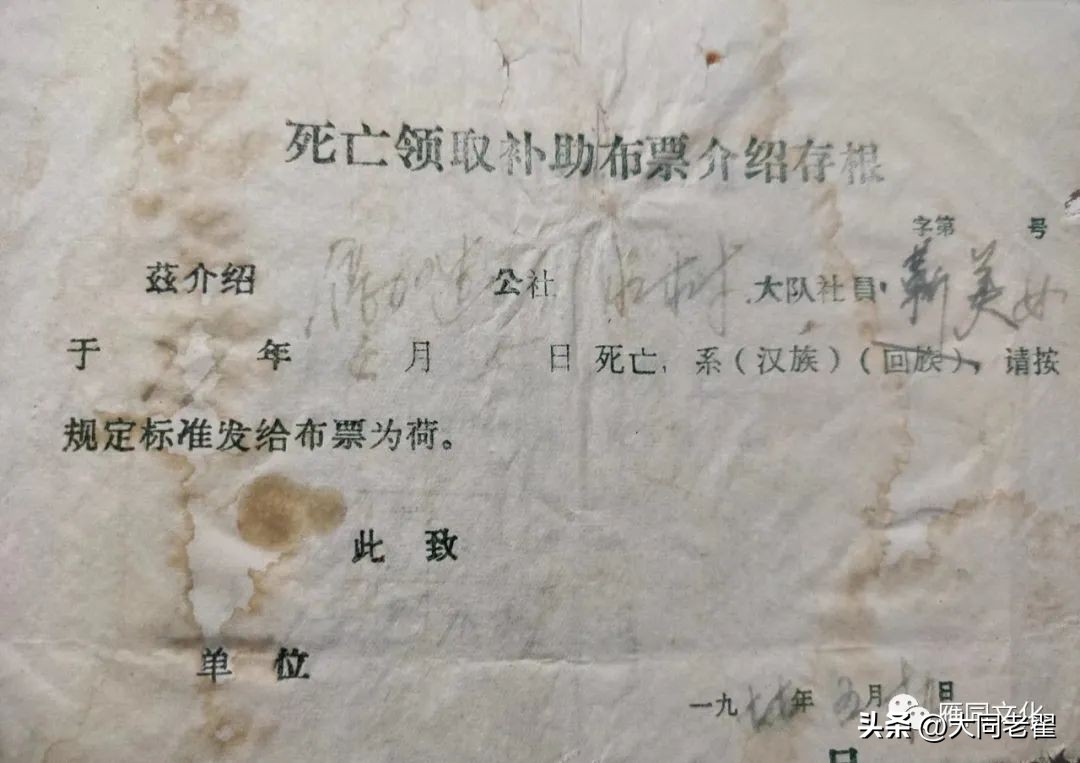 死亡领取补助布票介绍存根
字第 号
兹介绍 公社 村 大队社員 靳美女
于 年 五 月 日 死亡, 系(汉族)(回族), 请按
规定标准发给布票为荷。
此 致
单 位
一九七七年 五月 十 日
雁同文化
头条 @大同老翟